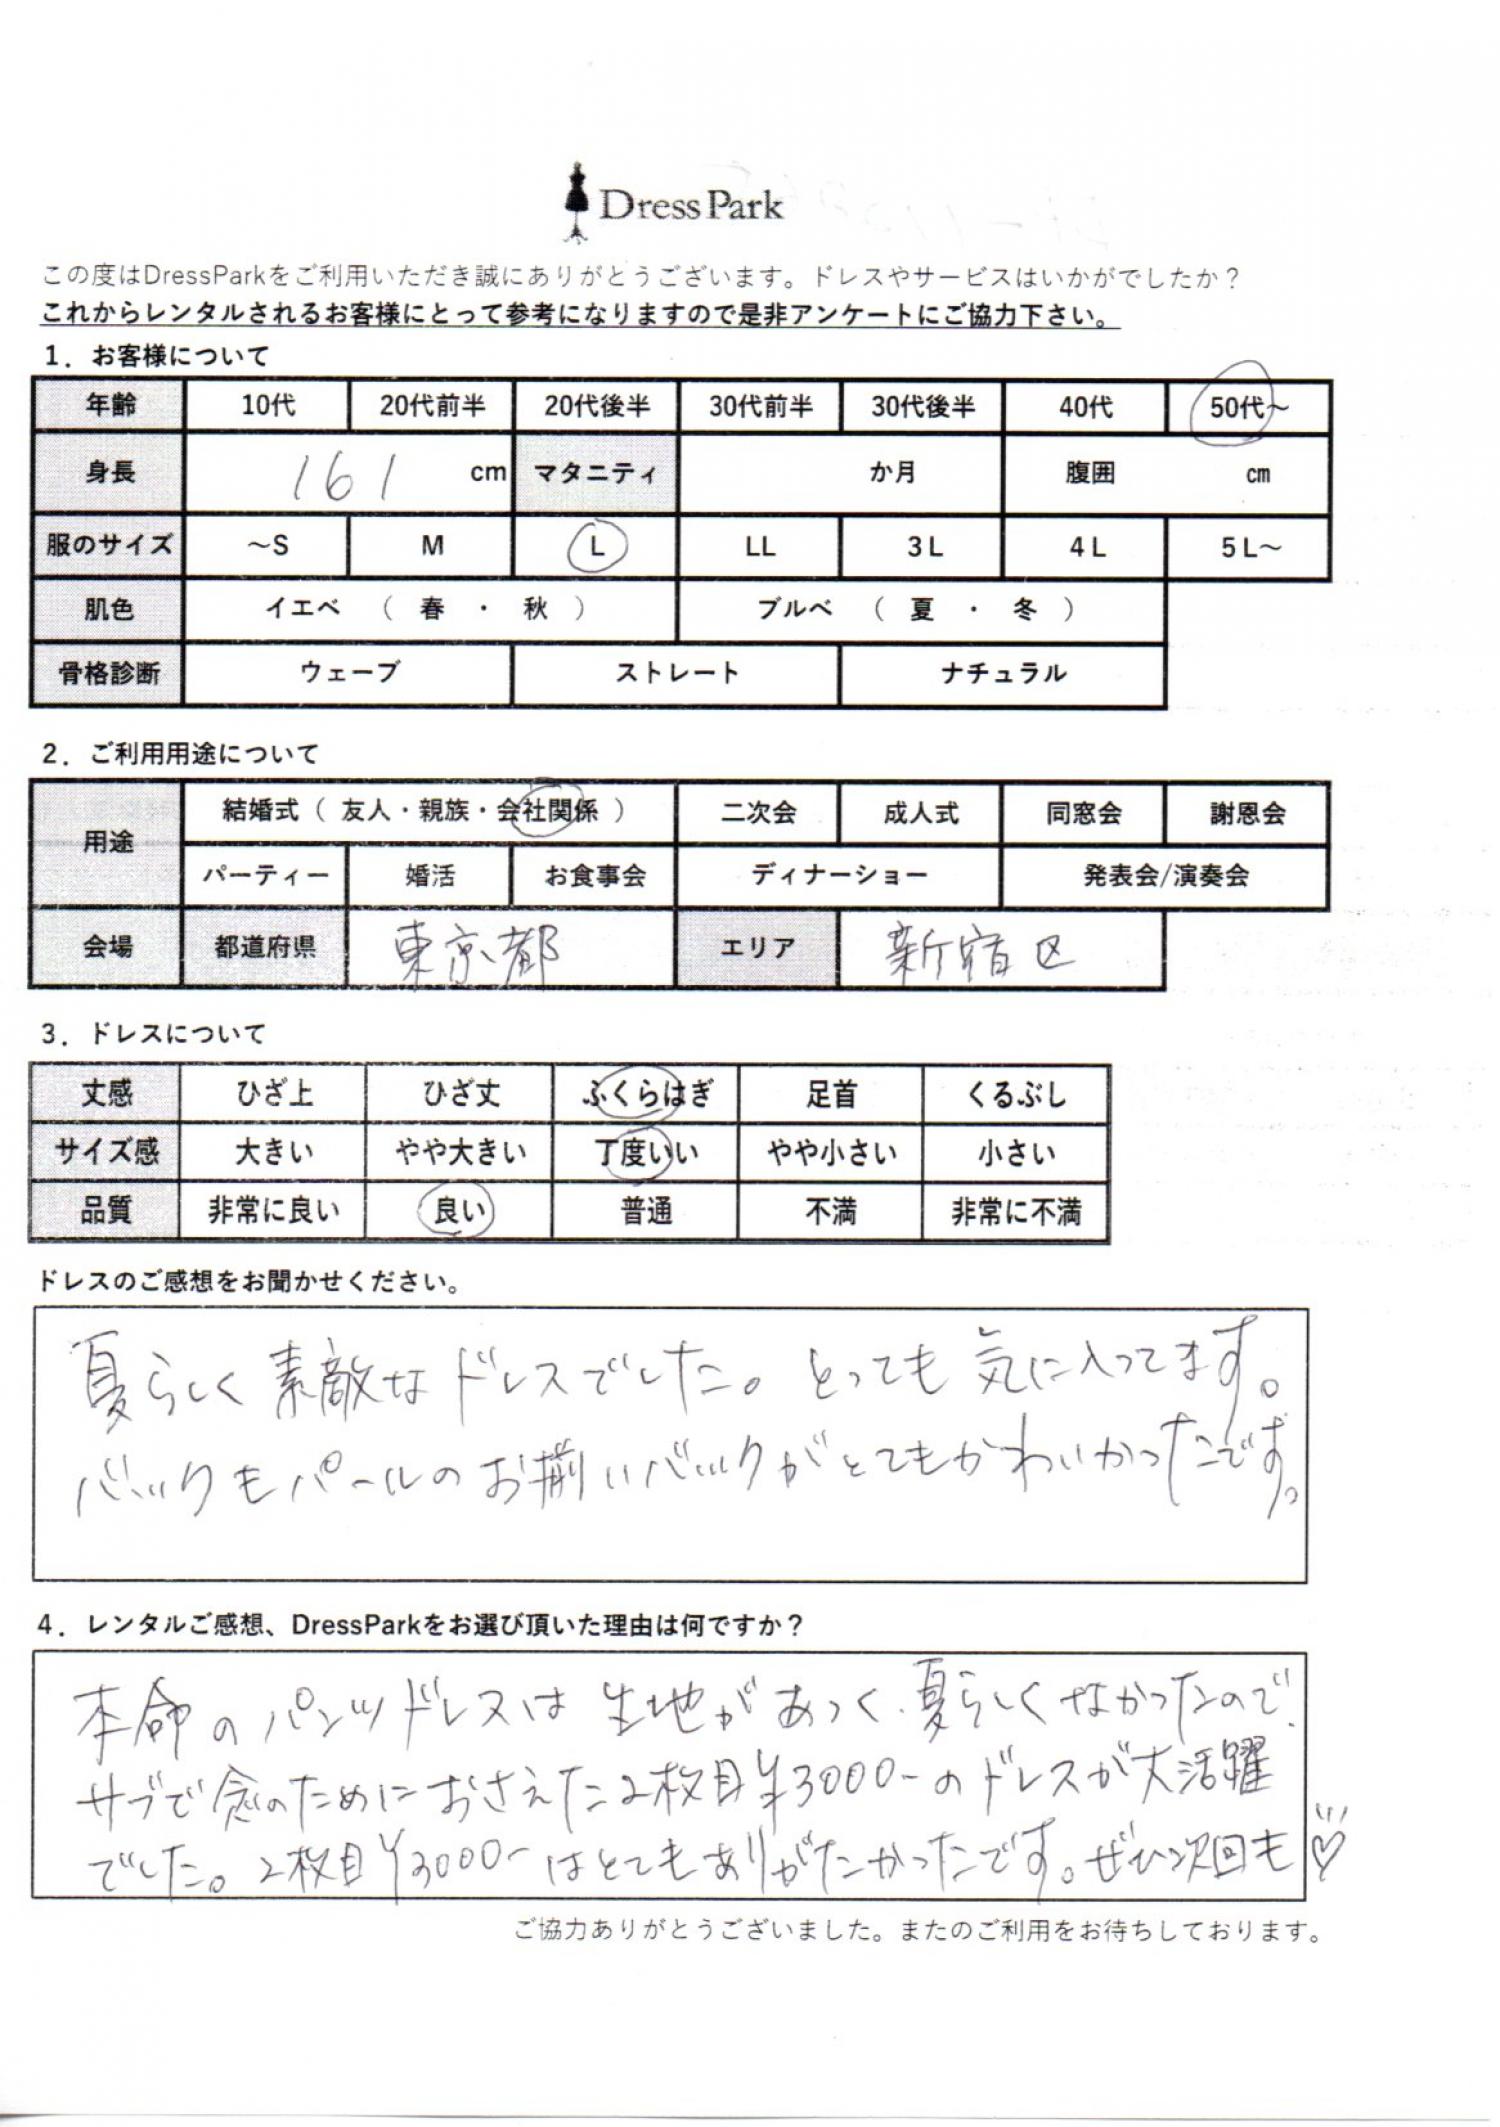 DressPark
この度はDressParkをご利用いただき誠にありがとうございます。ドレスやサービスはいかがでしたか？
これからレンタルされるお客様にとって参考になりますので是非アンケートにご協力下さい。
1．お客様について
年齢 10代 20代前半 20代後半 30代前半 30代後半 40代 50代～
身長 161 cm マタニティ か月 腹囲 cm
服のサイズ ～S M L LL 3L 4L 5L～
肌色 イエベ （ 春 ・ 秋 ） ブルベ （ 夏 ・ 冬 ）
骨格診断 ウェーブ ストレート ナチュラル
2．ご利用用途について
用途 結婚式（ 友人・親族・会社関係 ） 二次会 成人式 同窓会 謝恩会
パーティー 婚活 お食事会 ディナーショー 発表会/演奏会
会場 都道府県 東京都 エリア 新宿区
3．ドレスについて
丈感 ひざ上 ひざ丈 ふくらはぎ 足首 くるぶし
サイズ感 大きい やや大きい 丁度いい やや小さい 小さい
品質 非常に良い 良い 普通 不満 非常に不満
ドレスのご感想をお聞かせください。
夏らしく素敵なドレスでした。とっても気に入ってます。
バックもパールのお揃いバックがとてもかわいかったです。
4．レンタルご感想、DressParkをお選び頂いた理由は何ですか？
本命のパンツドレスは生地があつく、夏らしくなかったので、
サブで念のためにおさえた2枚目¥3000-のドレスが大活躍
でした。2枚目¥3000-はとてもありがたかったです。ぜひ次回も♡
ご協力ありがとうございました。またのご利用をお待ちしております。